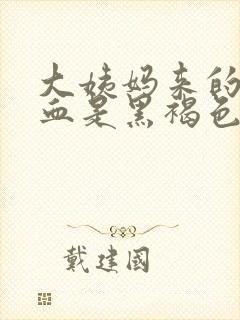 大姨妈来的
血是黑褐色
戴建国